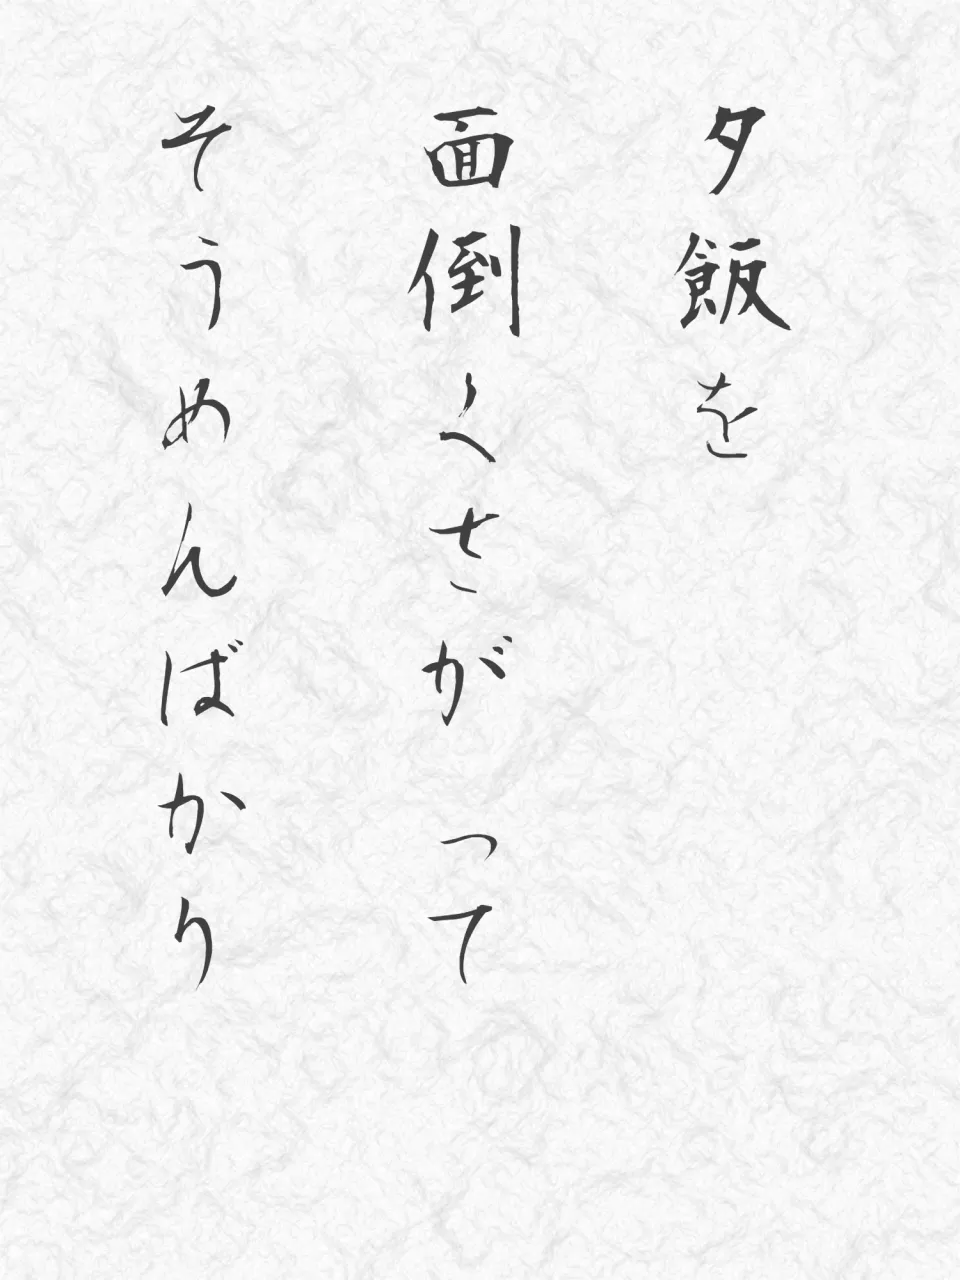 夕飯を
面倒くさがって
そうめんばかり